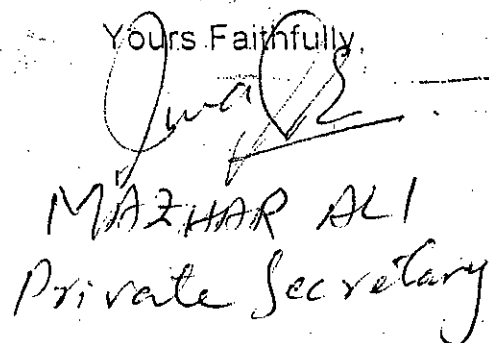 Yours Faithfully,
MAZHAR ALI
Private Secretary